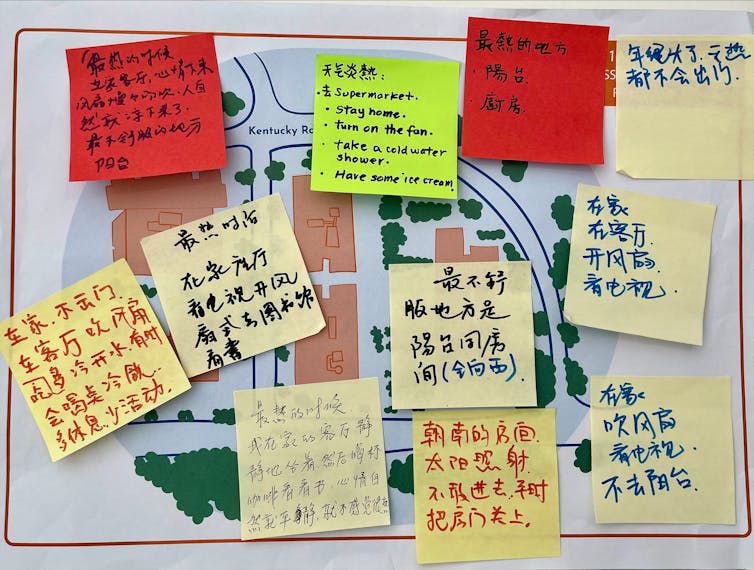 最熱的时候
在家客厅,心情下来
风扇慢々的吹,人自
然就凉下来了.
最不舒服的地方
阳台
天气炎熱:
· 去 Supermarket.
· Stay home.
· turn on the fan.
· take a cold water
shower.
· Have some ice cream.
最热的地方
· 陽台.
· 廚房.
年纪大了.天热
都不会出门.
1
SS
Kentucky Ro
最热时候
在家客厅
看电视开风
扇或去图书馆
看書
在家
在客厅.
开风扇.
看电视.
在家.不出门.
在客厅吹风扇
多冷开水.有时
会喝桌冷飲.
多休息.少活动.
最不舒
服地方是
陽台同房
间(全向西)
最热的时候
我在家的客厅静
静地坐着然后喝杯
咖啡看看书.心情自
然就平静.就不感觉
朝南的房间.
太阳照射.
不敢进去.平时
把房门关上.
在家
吹风扇
看电视.
不去阳台.